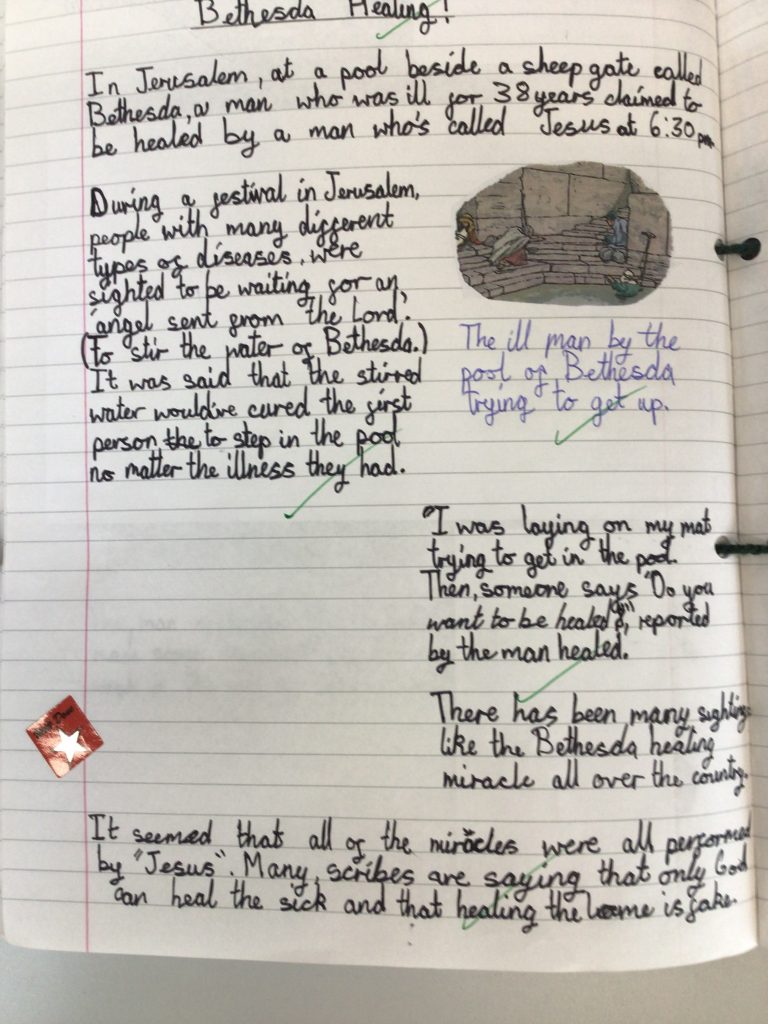 Bethesda Healing!
In Jerusalem, at a pool beside a sheep gate called
Bethesda, a man who was ill for 38 years claimed to
be healed by a man who's called Jesus at 6:30 pm
During a festival in Jerusalem,
people with many different
types of diseases, were
sighted to be waiting for an
'angel sent from the Lord'.
(To stir the water of Bethesda.)
It was said that the stirred
water would've cured the first
person the to step in the pool
no matter the illness they had.
The ill man by the
pool of Bethesda
trying to get up.
"I was laying on my mat
trying to get in the pool.
Then, someone says "Do you
want to be healed?", reported
by the man healed.
There has been many sightings
like the Bethesda healing
miracle all over the country.
It seemed that all of the miracles were all performed
by "Jesus". Many, scribes are saying that only God
can heal the sick and that healing the lame is fake.